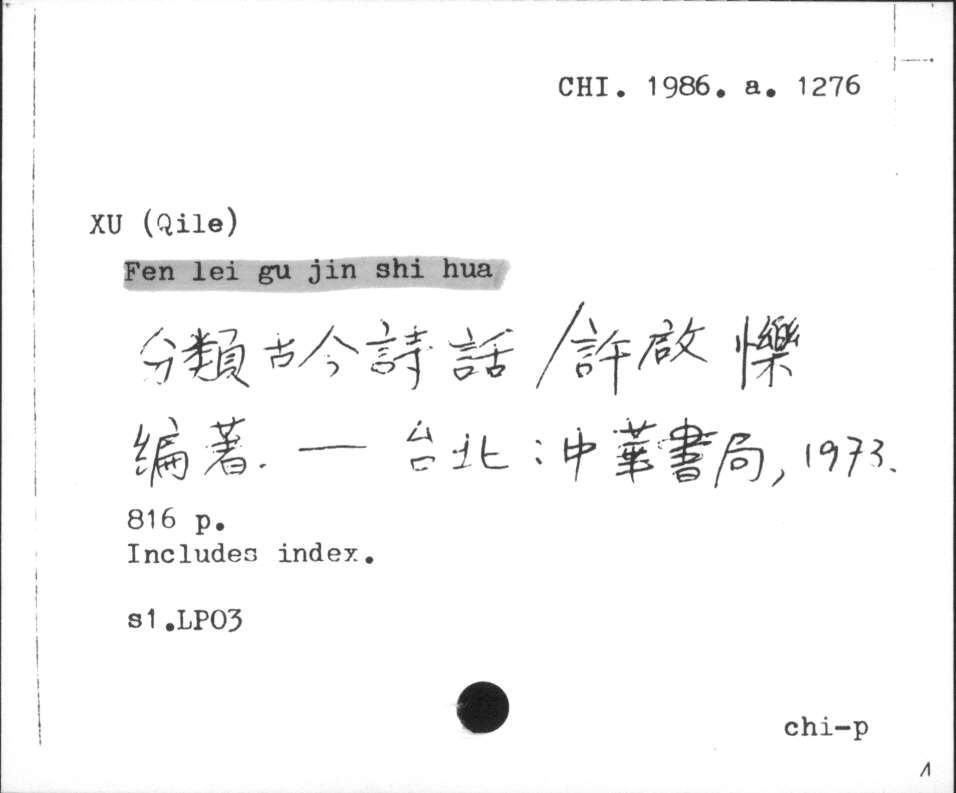 CHI. 1986. a. 1276
XU (Qile)
Fen lei gu jin shi hua
分類古今詩話/許啟㦡
編著. — 台北:中華書局, 1973.
816 p.
Includes index.
s1.LP03
chi-p
1